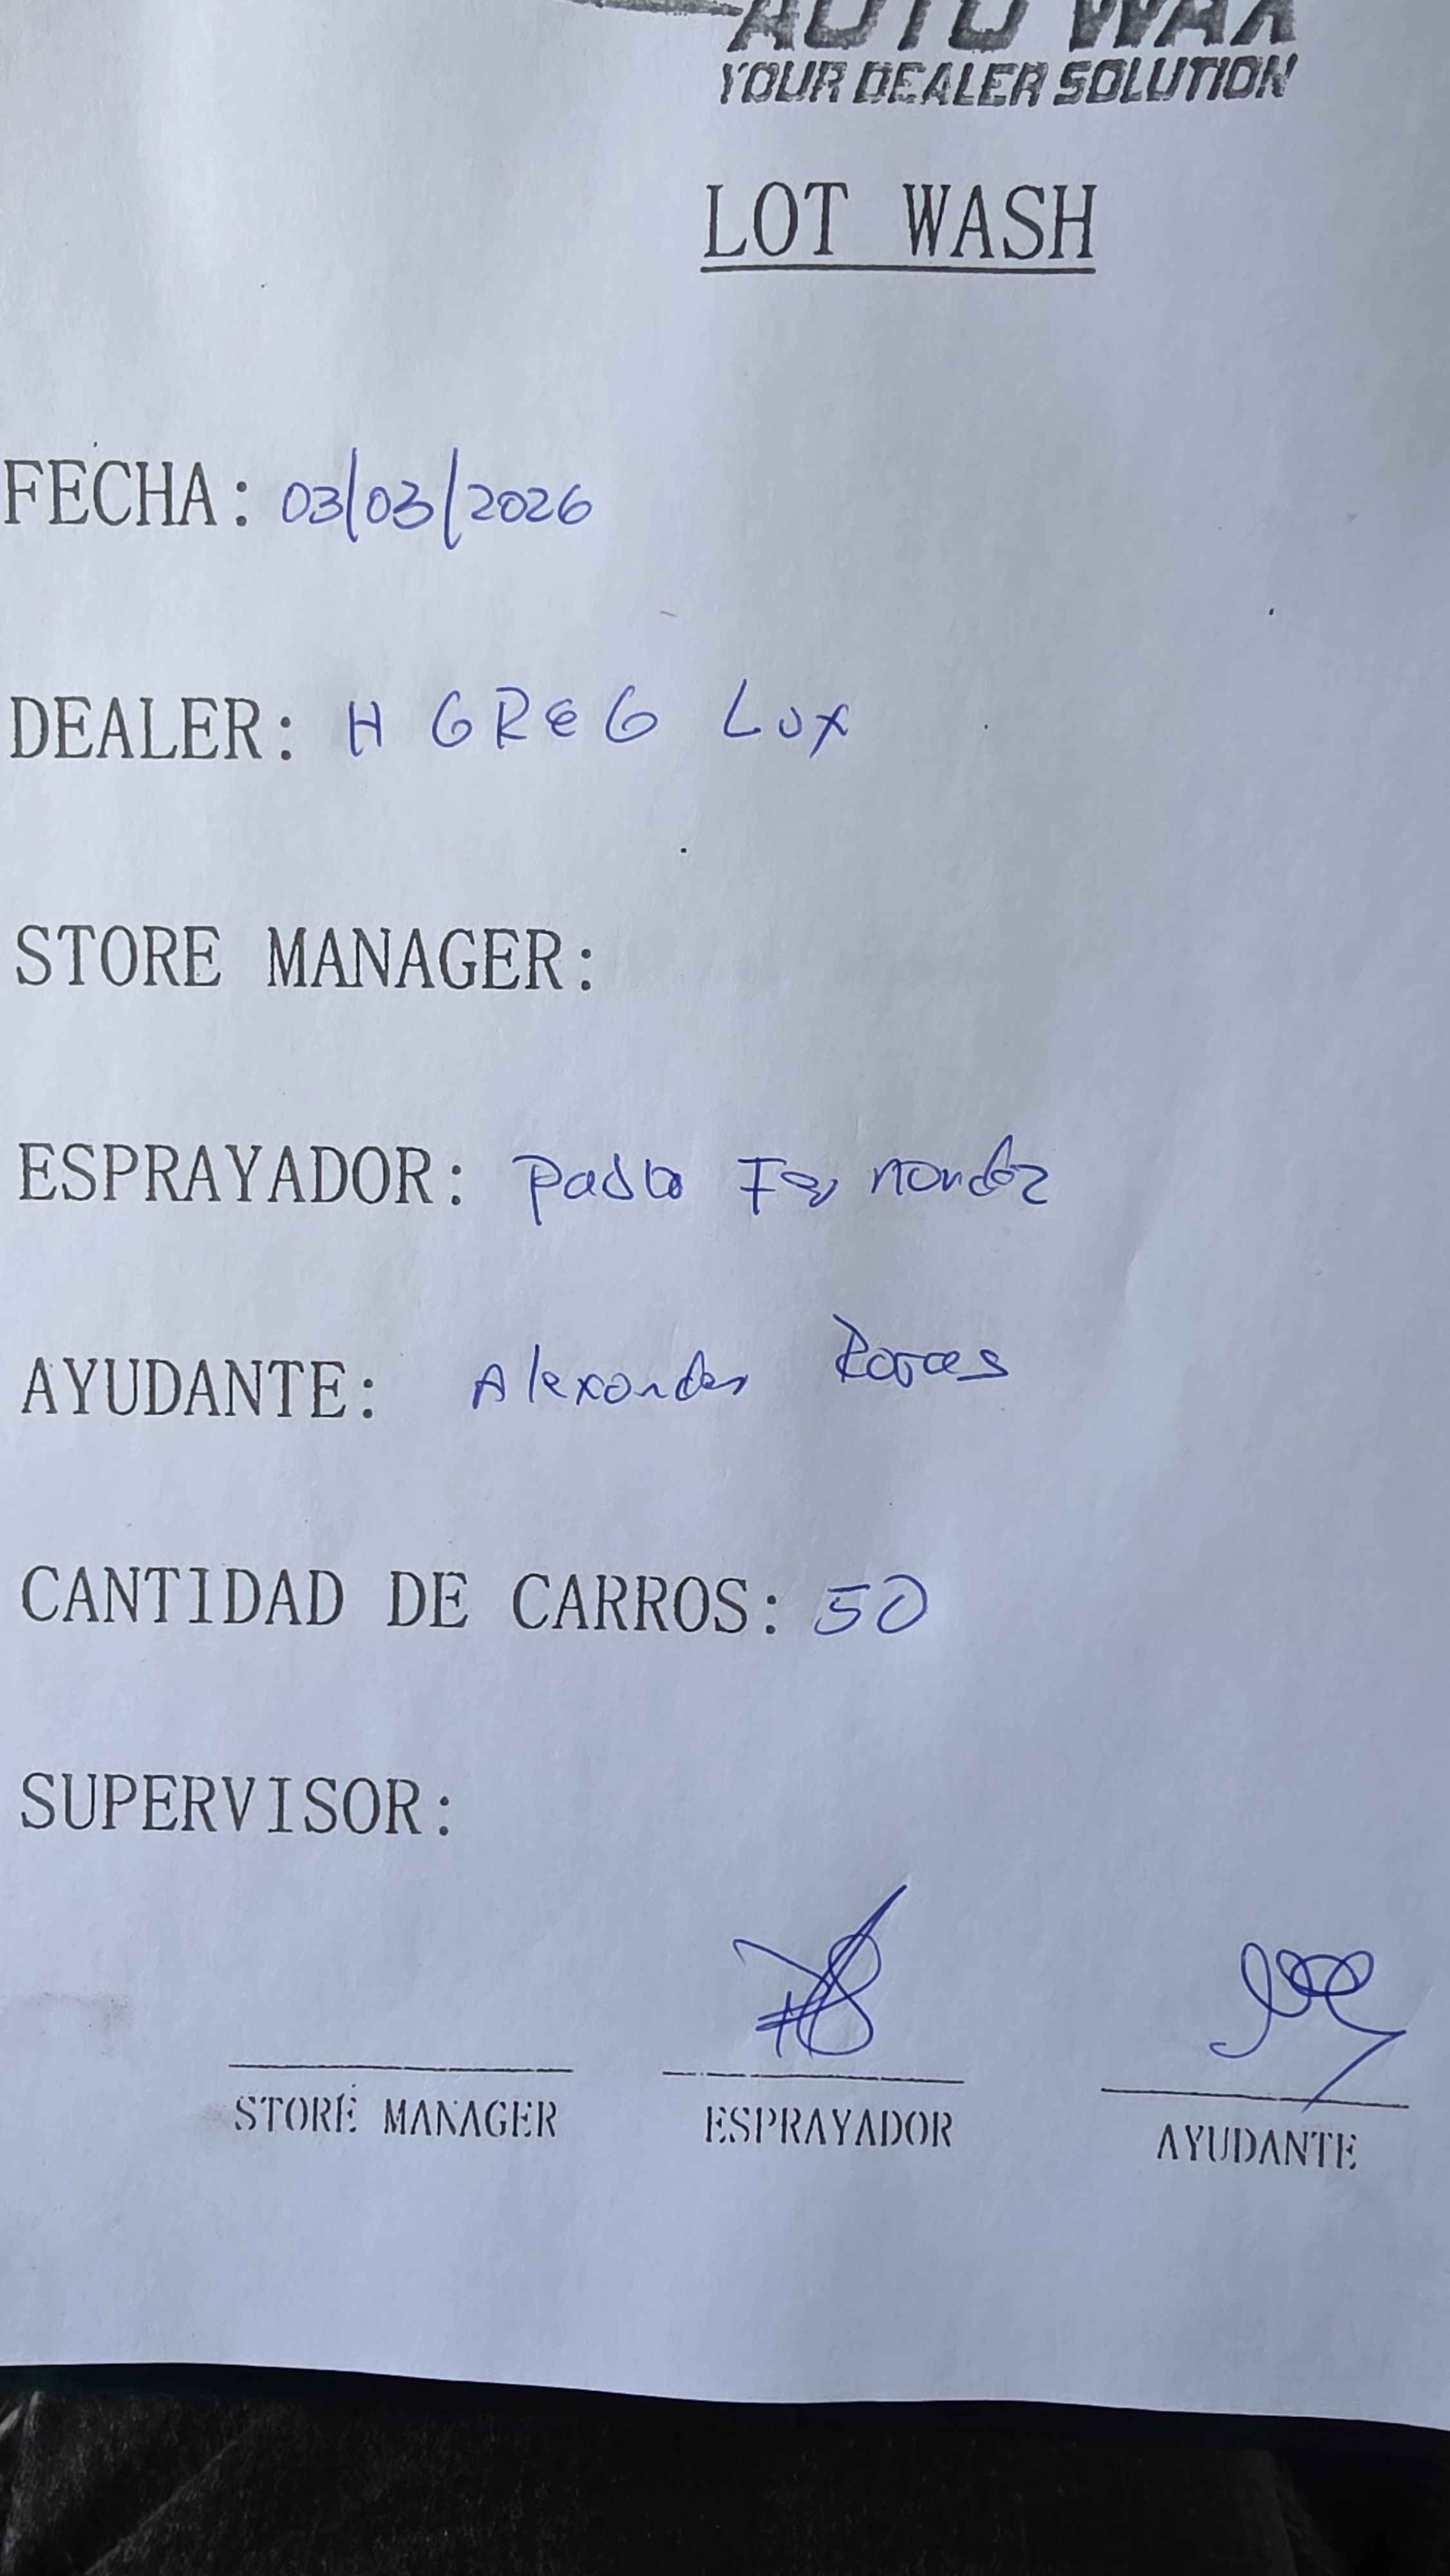 AUTO WAX
YOUR DEALER SOLUTION
LOT WASH
FECHA: 03/03/2026
DEALER: H GREG LUX
STORE MANAGER:
ESPRAYADOR: Pablo Fernandez
AYUDANTE: Alexander Rojas
CANTIDAD DE CARROS: 50
SUPERVISOR:
STORE MANAGER ESPRAYADOR AYUDANTE